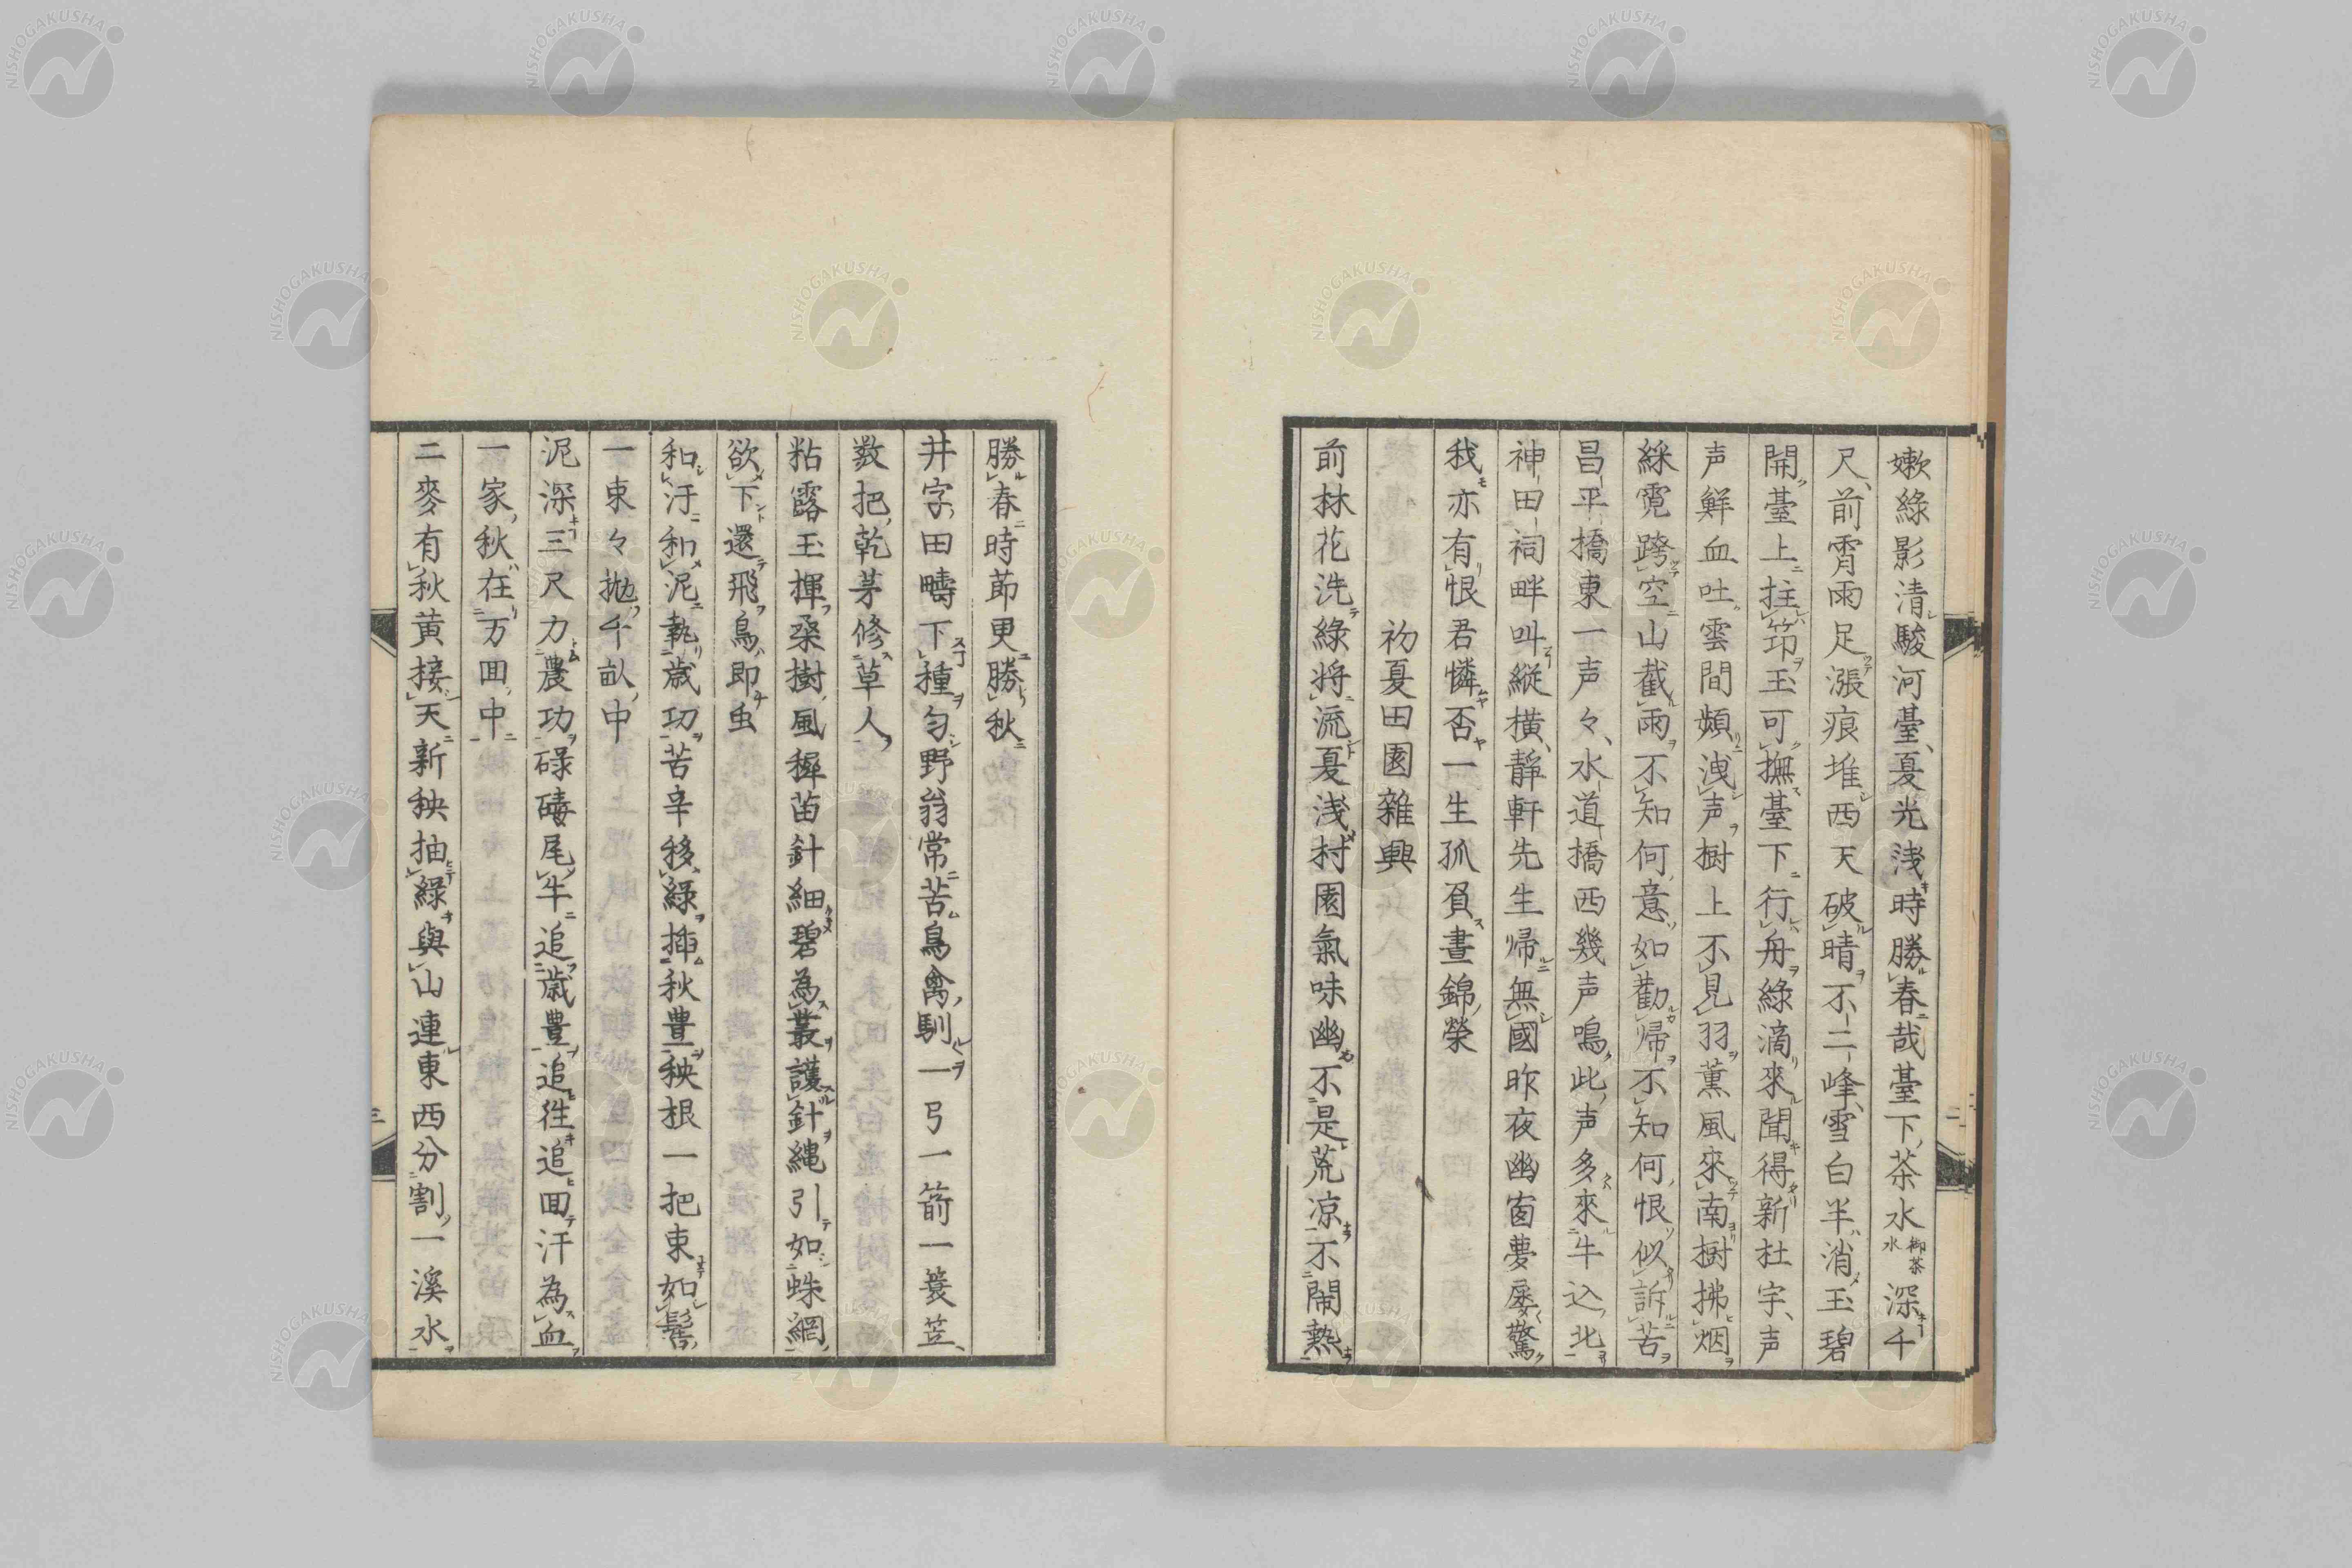 嫰綠影清駿河臺夏光浅時勝春哉臺下茶水御茶水深千
尺前霄雨足漲痕堆西天破晴不二峰雪白半消玉碧
開臺上拄筇玉可撫臺下行舟綠滴來聞得新杜宇声
声鮮血吐雲間頻洩声樹上不見羽薫風來南樹拂烟
綵霓跨空山截雨不知何意如勸帰不知何恨似訴苦
昌平橋東一声々水道橋西幾声鳴此声多來牛込北
神田祠畔叫縱橫靜軒先生帰無國昨夜幽窗夢屡驚
我亦有恨君憐否一生孤負晝錦榮
初夏田園雜興
前林花洗綠將流夏浅村園氣味幽不是荒凉不鬧熱
二
勝春時節更勝秋
井字田疇下種匀野翁常苦鳥禽馴一弓一箭一簑笠
数把乾茅修草人
粘露玉揮桑樹風穉苗針細碧為叢護針縄引如蛛網
欲下還飛鳥即虫
和汙和泥執歳功苦辛移綠挿秋豊秧根一把束如髻
一束々拋千畝中
泥深三尺力農功碌碡尾牛追歳豊追徃追回汗為血
一家秋在万回中
二麥有秋黄接天新秧抽綠與山連東西分割一溪水
三
NISHOGAKUSHA